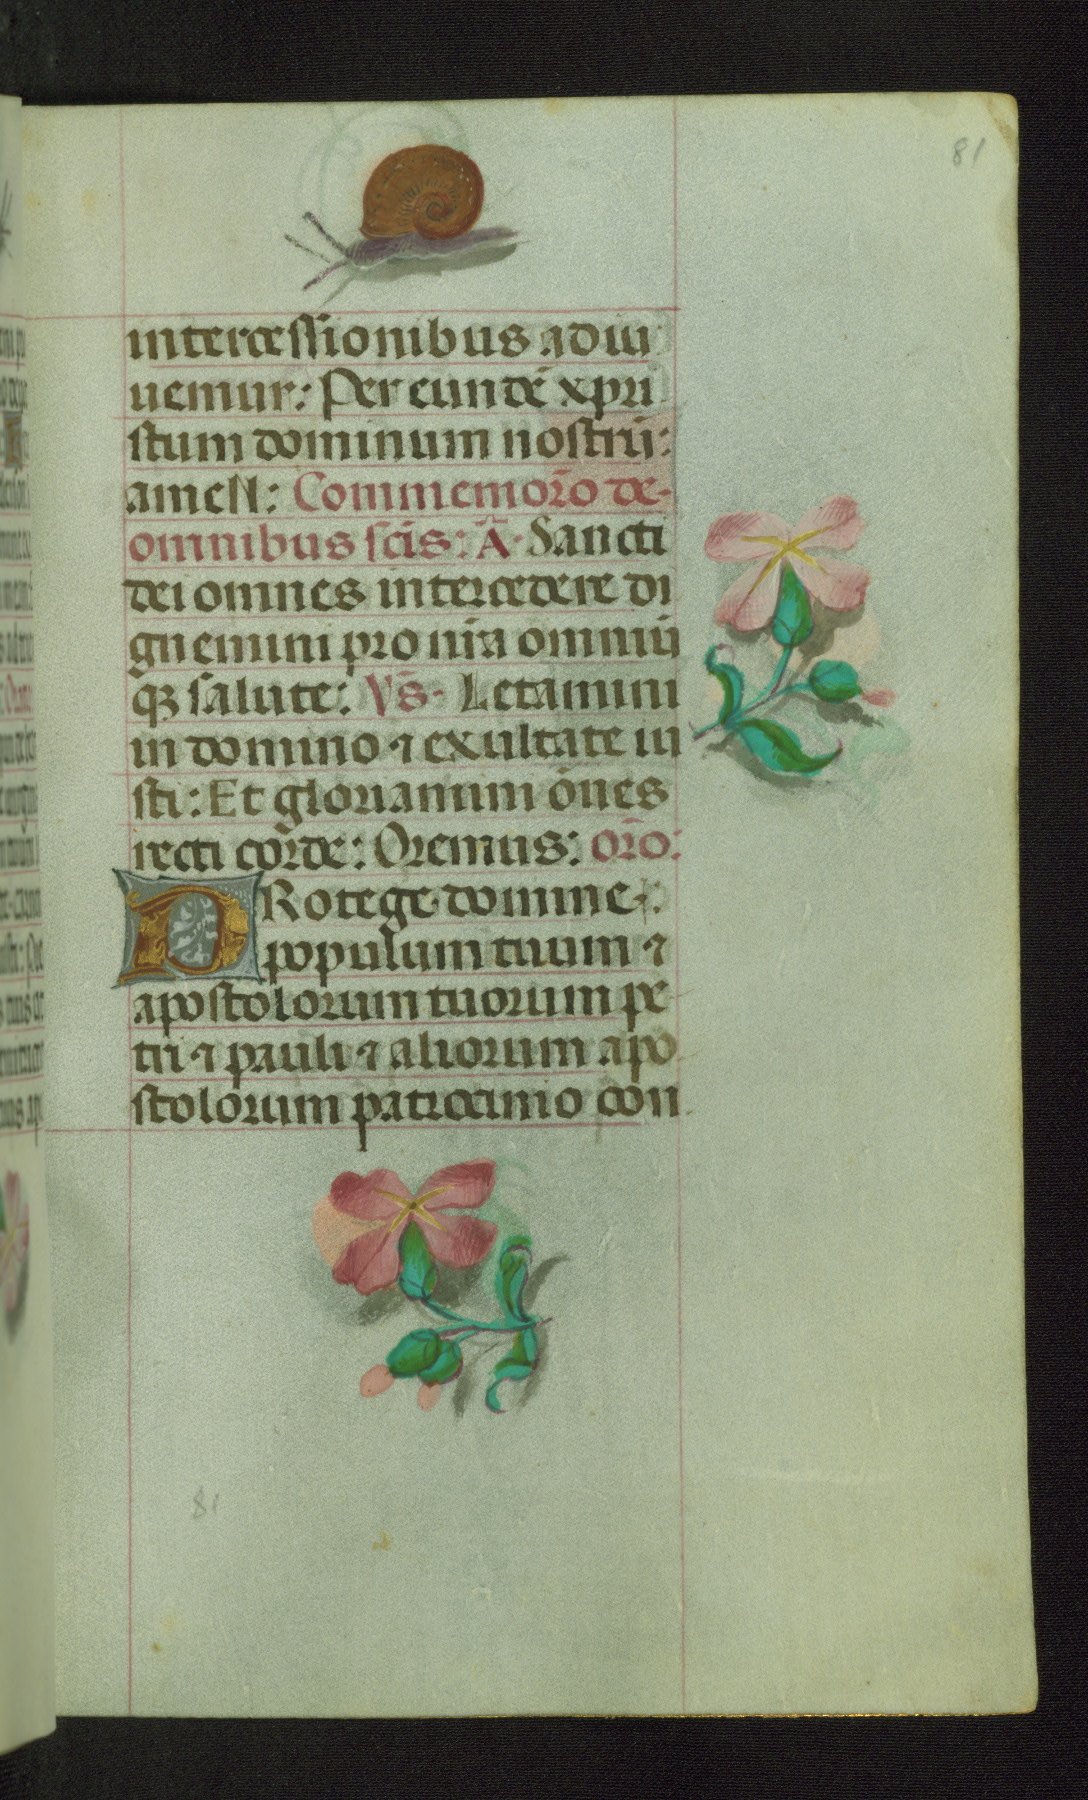 81
intercessionibus adiu
uemur: Per eundē xpri
stum dominum nostrū:
amen: Commemorō de
omnibus scīs: Ā. Sancti
dei omnes intercedere di
gnemini pro nr̄a omniū
qꝫ salute: Vs̄. Letamini
in domino ⁊ exultate iu
sti: Et gloriamini ōnes
recti corde: Oremus: orō:
PRotege domine
populum tuum ⁊
apostolorum tuorum pe
tri ⁊ pauli ⁊ aliorum apo
stolorum patrocinio con
81